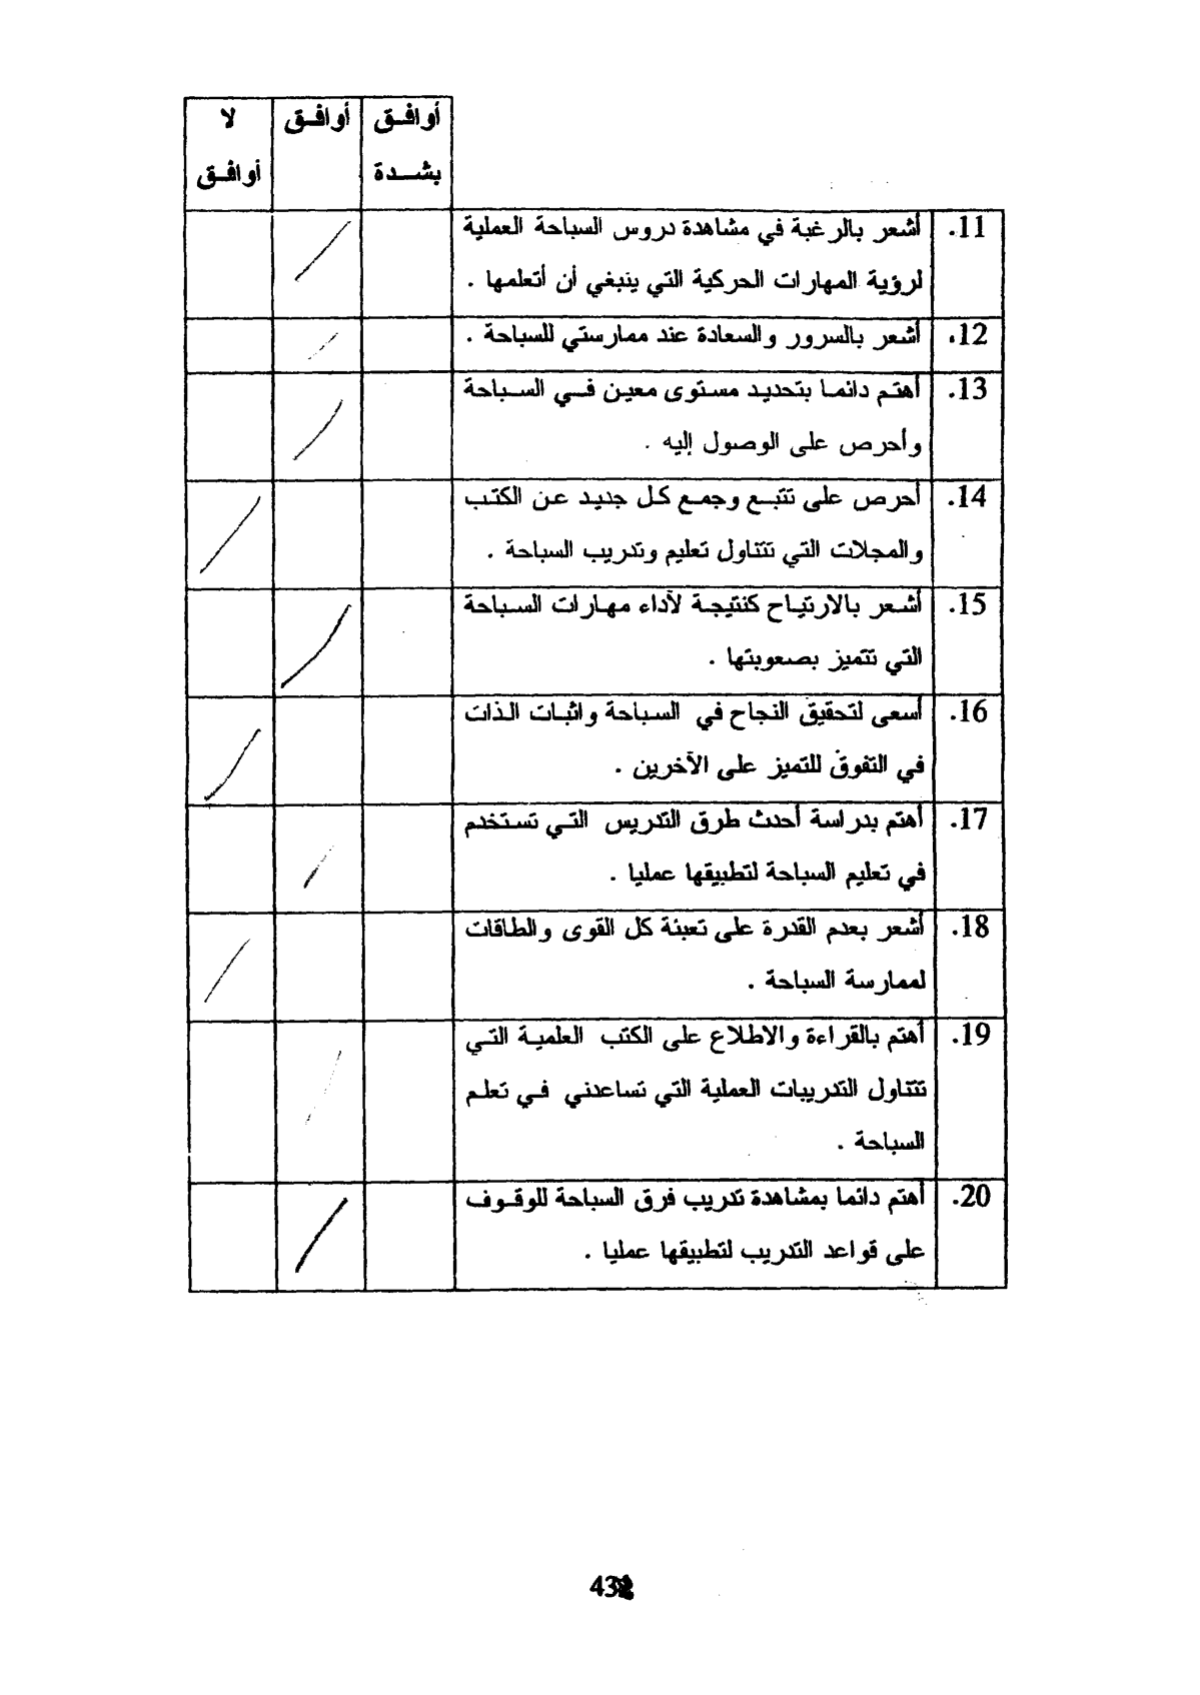 أوافق أوافق لا
بشدة أوافق
11. أشعر بالرغبة في مشاهدة دروس السباحة العملية
لرؤية المهارات الحركية التي ينبغي أن أتعلمها .
12. أشعر بالسرور والسعادة عند ممارستي للسباحة .
13. أهتم دائما بتحديد مستوى معين في السباحة
وأحرص على الوصول إليه .
14. أحرص على تتبع وجمع كل جديد عن الكتب
والمجلات التي تتناول تعليم وتدريب السباحة .
15. أشعر بالارتياح كنتيجة لآداء مهارات السباحة
التي تتميز بصعوبتها .
16. أسعى لتحقيق النجاح في السباحة واثبات الذات
في التفوق للتميز على الآخرين .
17. أهتم بدراسة أحدث طرق التدريس التي تستخدم
في تعليم السباحة لتطبيقها عمليا .
18. أشعر بعدم القدرة على تعبئة كل القوى والطاقات
لممارسة السباحة .
19. أهتم بالقراءة والاطلاع على الكتب العلمية التي
تتناول التدريبات العملية التي تساعدني في تعلم
السباحة .
20. أهتم دائما بمشاهدة تدريب فرق السباحة للوقوف
على قواعد التدريب لتطبيقها عمليا .